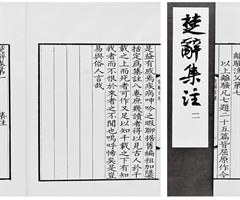 以離騷凡七題二十五篇皆屈原作
楚辭集注
是益有感焉疾病呻吟之暇聊據舊編粗加櫽
括定爲集註八卷庶幾讀者得以見古人於千
載之上而死者可作又足以知千載之下有知
我者而不恨於來者之不聞也嗚呼悕矣是豈
易與俗人言哉
楚辭卷第一
集注